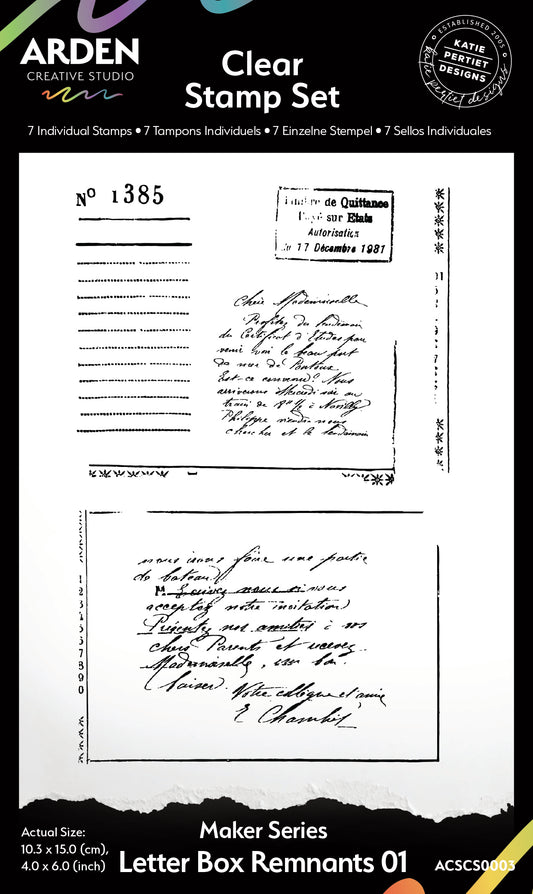 ARDEN
CREATIVE STUDIO
Clear
Stamp Set
ESTABLISHED 2005
KATIE
PERTIET
DESIGNS
katie pertiet designs
7 Individual Stamps • 7 Tampons Individuels • 7 Einzelne Stempel • 7 Sellos Individuales
Nº 1385
de Quittance
sur Etats
Autorisation
17 Décembre 1981
Chère Mademoiselle
Profitez du lendemain
du Certificat d'Etudes pour
venir voir le beau port
de mer de
Est-ce convenu? Nous
arriverons Mercredi soir au
train de 8h ½ à
Philippe viendra nous
chercher et le lendemain
nous irons faire une partie
de bateau
M. nous si vous
acceptez notre invitation
Présentez nos amitiés à vos
chers Parents et recevez
Mademoiselle, un bon
baiser. Votre collègue et amie
E Chambet
1
2
3
4
5
6
7
8
9
0
Actual Size:
10.3 x 15.0 (cm),
4.0 x 6.0 (inch)
Maker Series
Letter Box Remnants 01
ACSCS0003